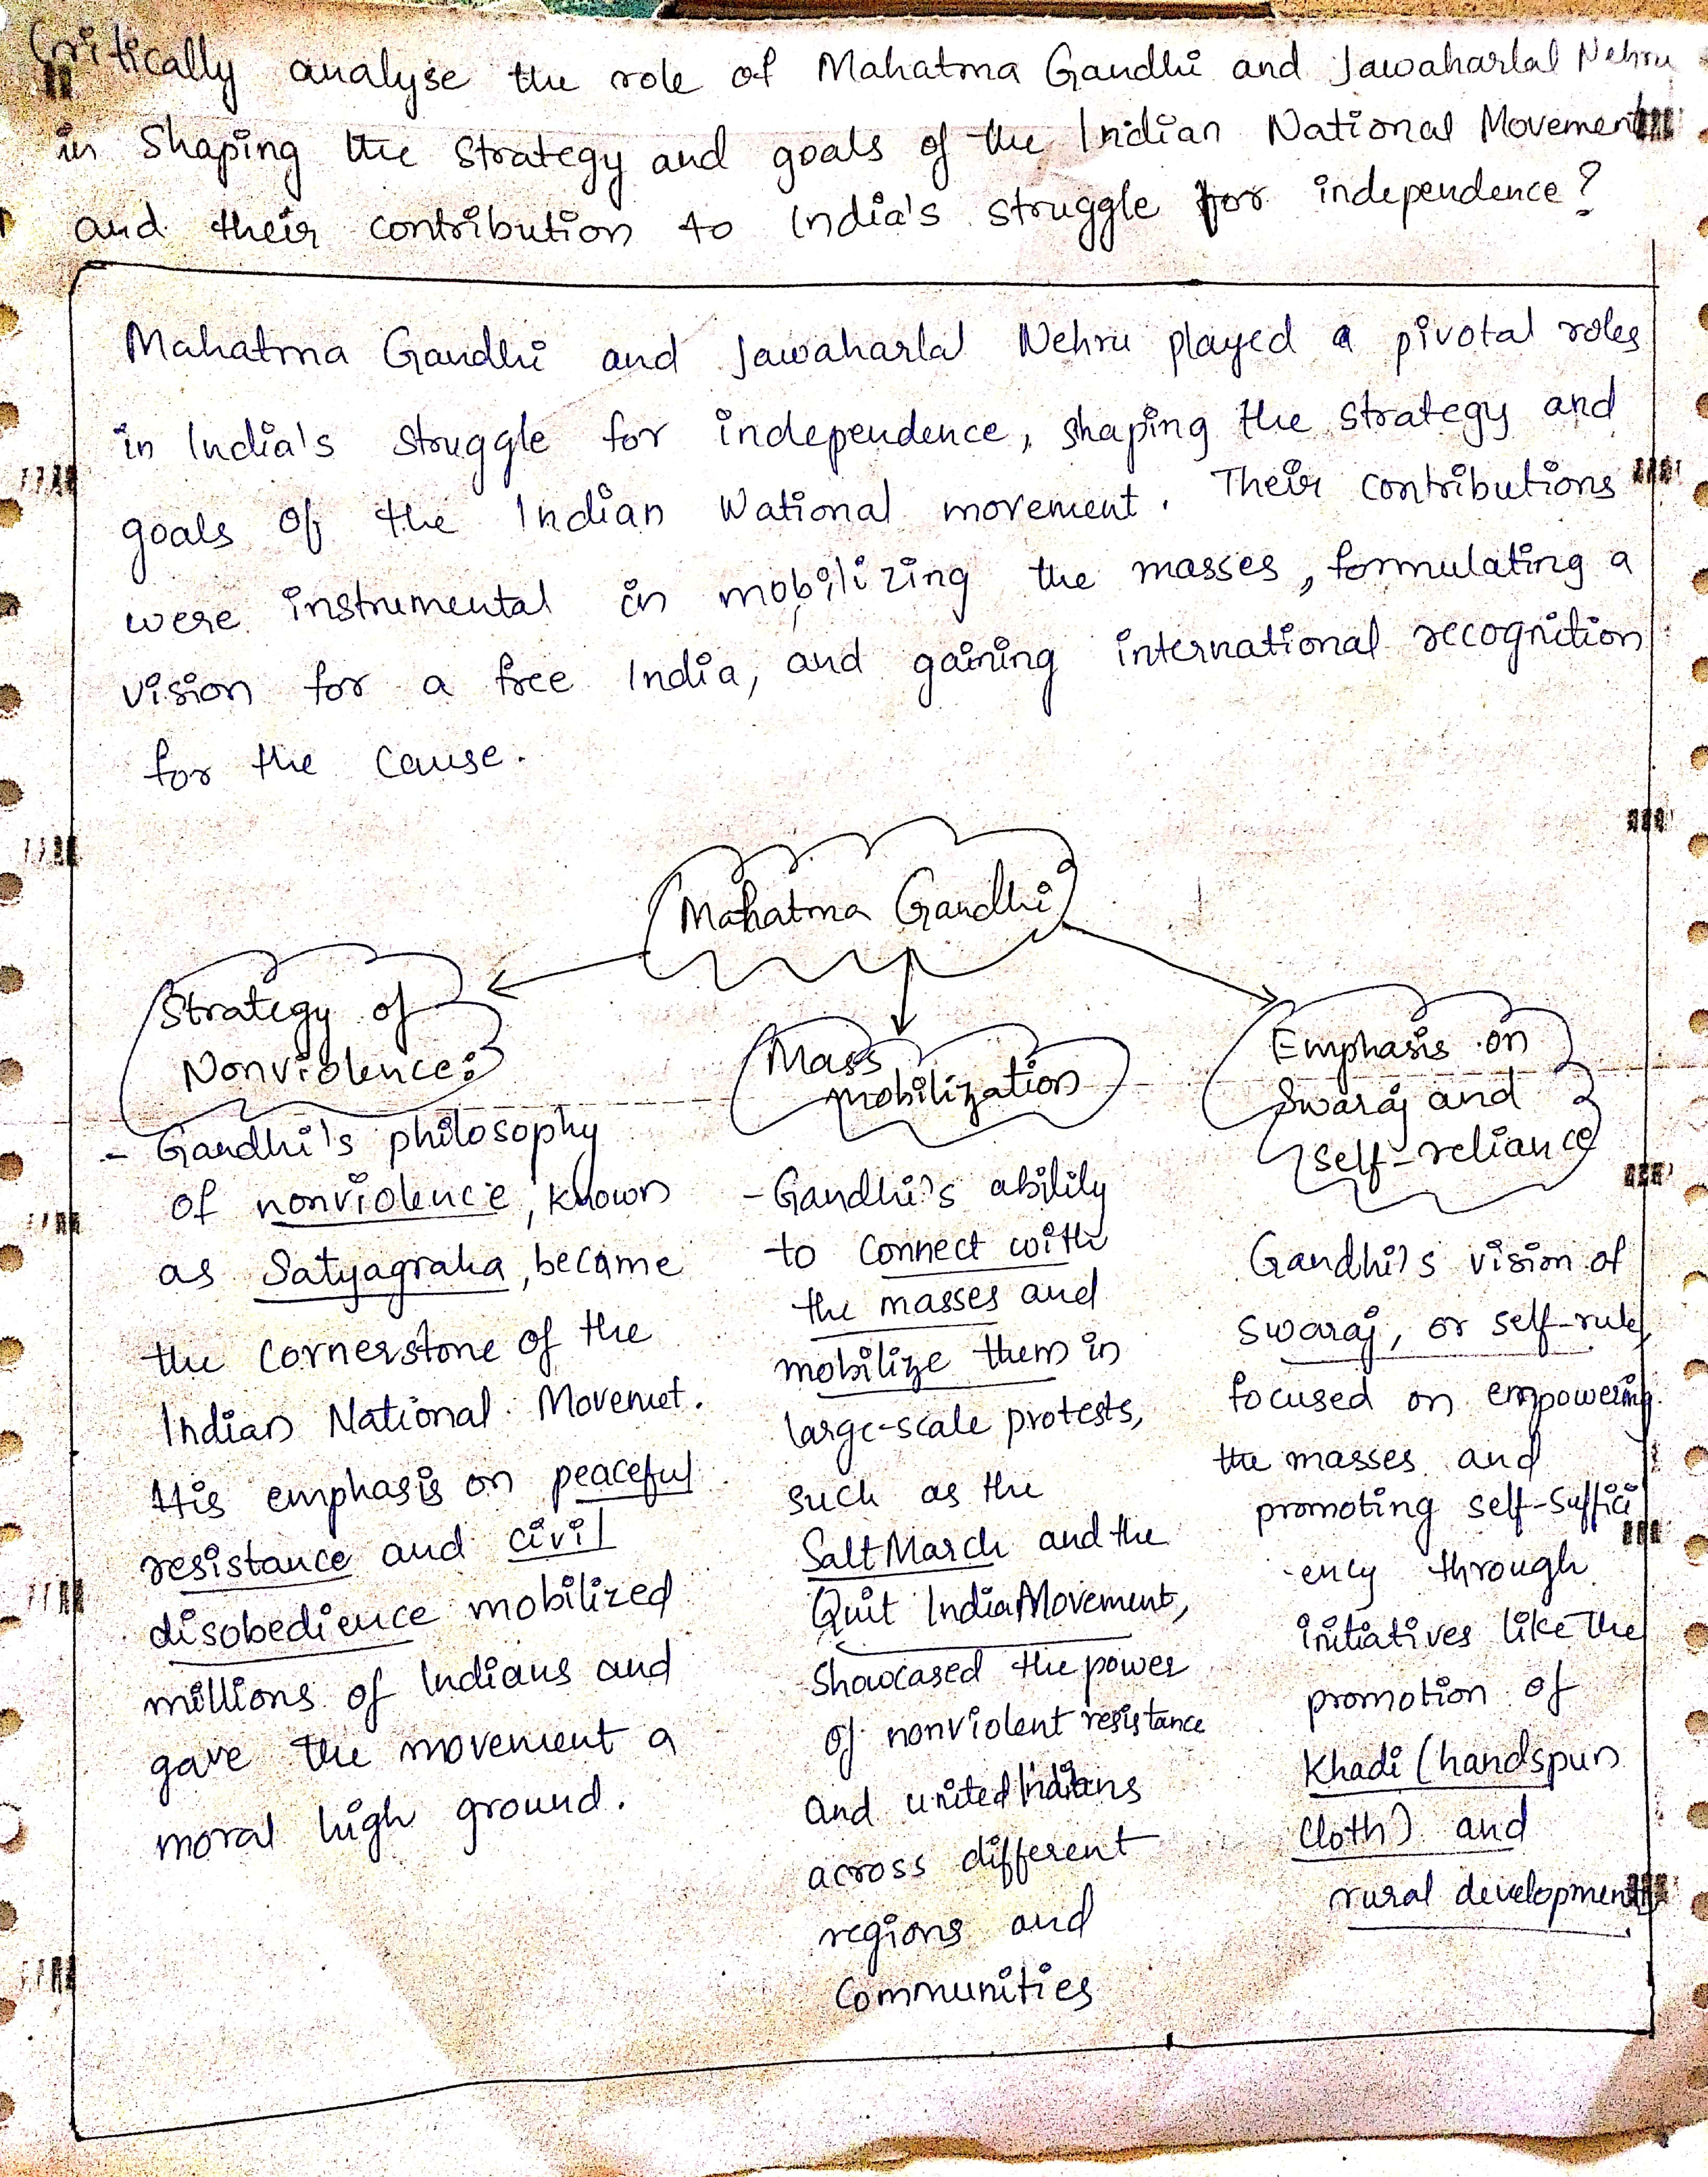 Critically analyse the role of Mahatma Gandhi and Jawaharlal Nehru
in Shaping the Strategy and goals of the Indian National Movement
and their contribution to India's struggle for independence?
Mahatma Gandhi and Jawaharlal Nehru played a pivotal roles
in India's struggle for independence, shaping the strategy and
goals of the Indian National movement. Their contributions
were instrumental in mobilizing the masses, formulating a
vision for a free India, and gaining international recognition
for the cause.
Mahatma Gandhi
Strategy of
Nonviolence:
- Gandhi's philosophy
of nonviolence, known
as Satyagraha, became
the cornerstone of the
Indian National Movemet.
His emphasis on peaceful
resistance and civil
disobedience mobilized
millions of Indians and
gave the movement a
moral high ground.
Mass
mobilization
- Gandhi's ability
to connect with
the masses and
mobilize them in
large-scale protests,
such as the
Salt March and the
Quit India Movement,
Showcased the power
of nonviolent resistance
and united Indians
across different
regions and
Communities
Emphasis on
Swaraj and
Self-reliance
Gandhi's vision of
swaraj, or self-rule,
focused on empowering
the masses and
promoting self-suffici
-ency through
initiatives like the
promotion of
Khadi (handspun
Cloth) and
rural development